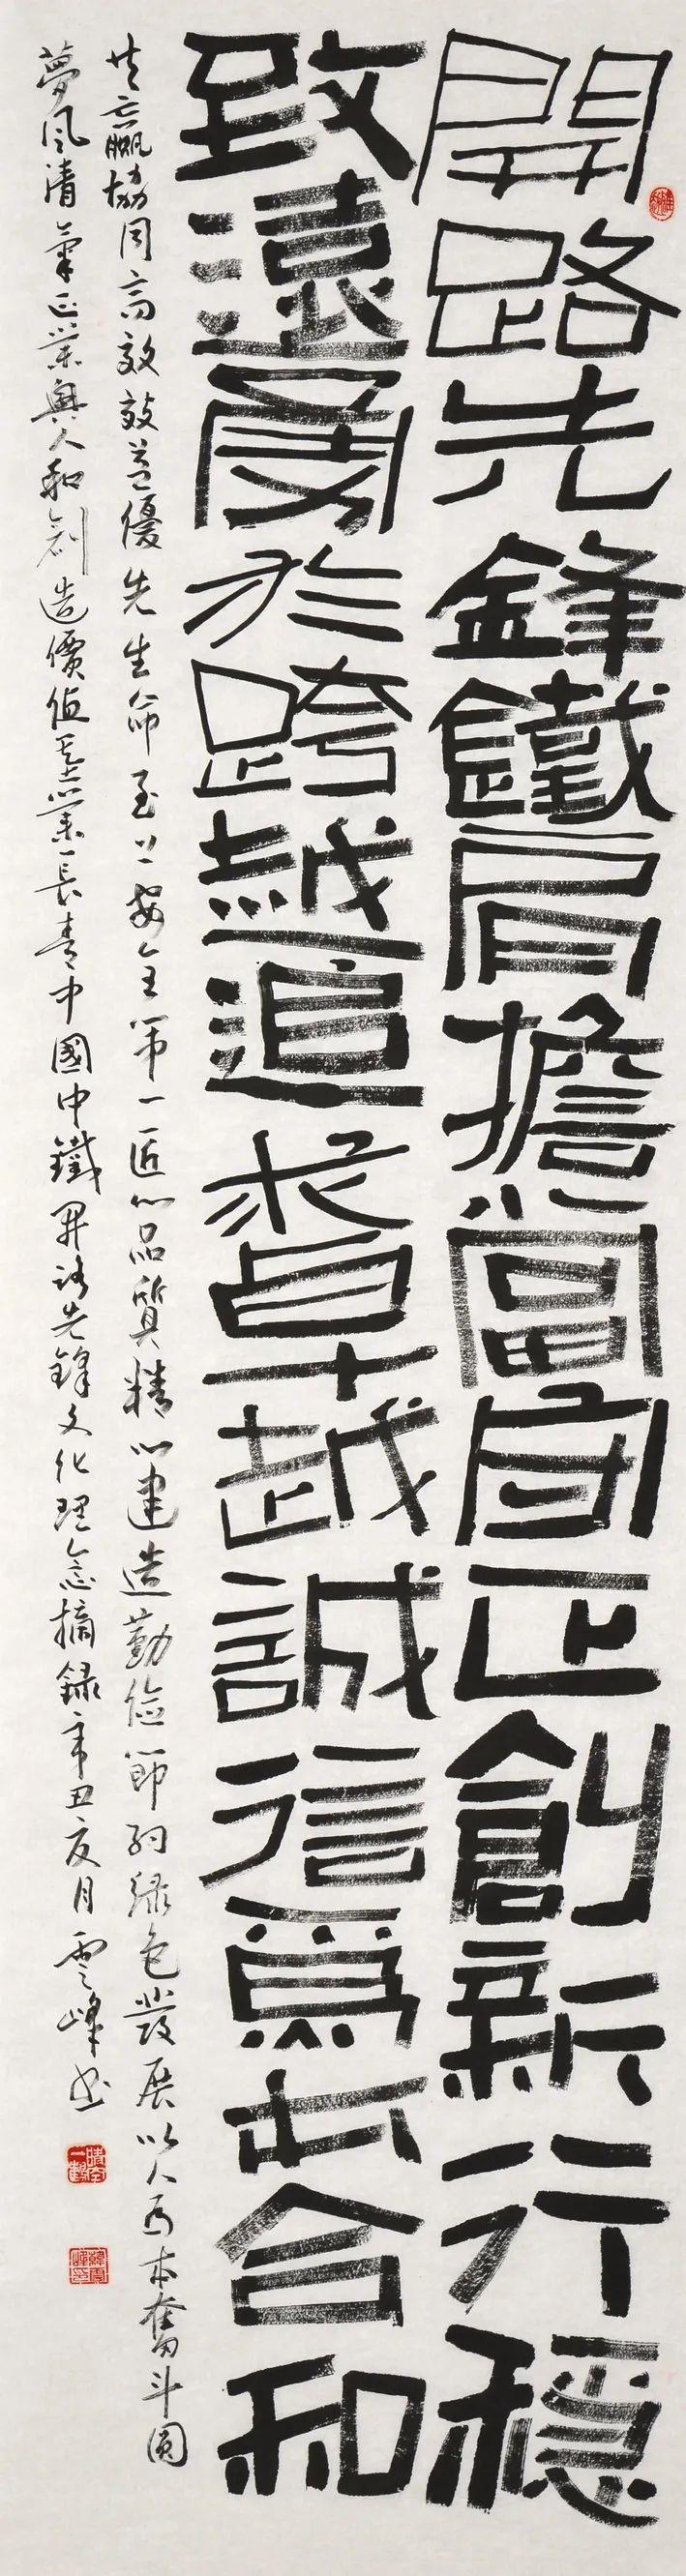 開路先鋒鐵肩擔當守正創新行穩
致遠勇於跨越追求卓越誠信為本合和
共贏協同高效效益優先生命至上安全第一匠心品質精心建造勤儉節約綠色發展以人為本奮斗圓
夢風清氣正業興人和創造價值基業長青中國中鐵開路先鋒文化理念摘錄辛丑夏月雲峰書
晴空一鶴